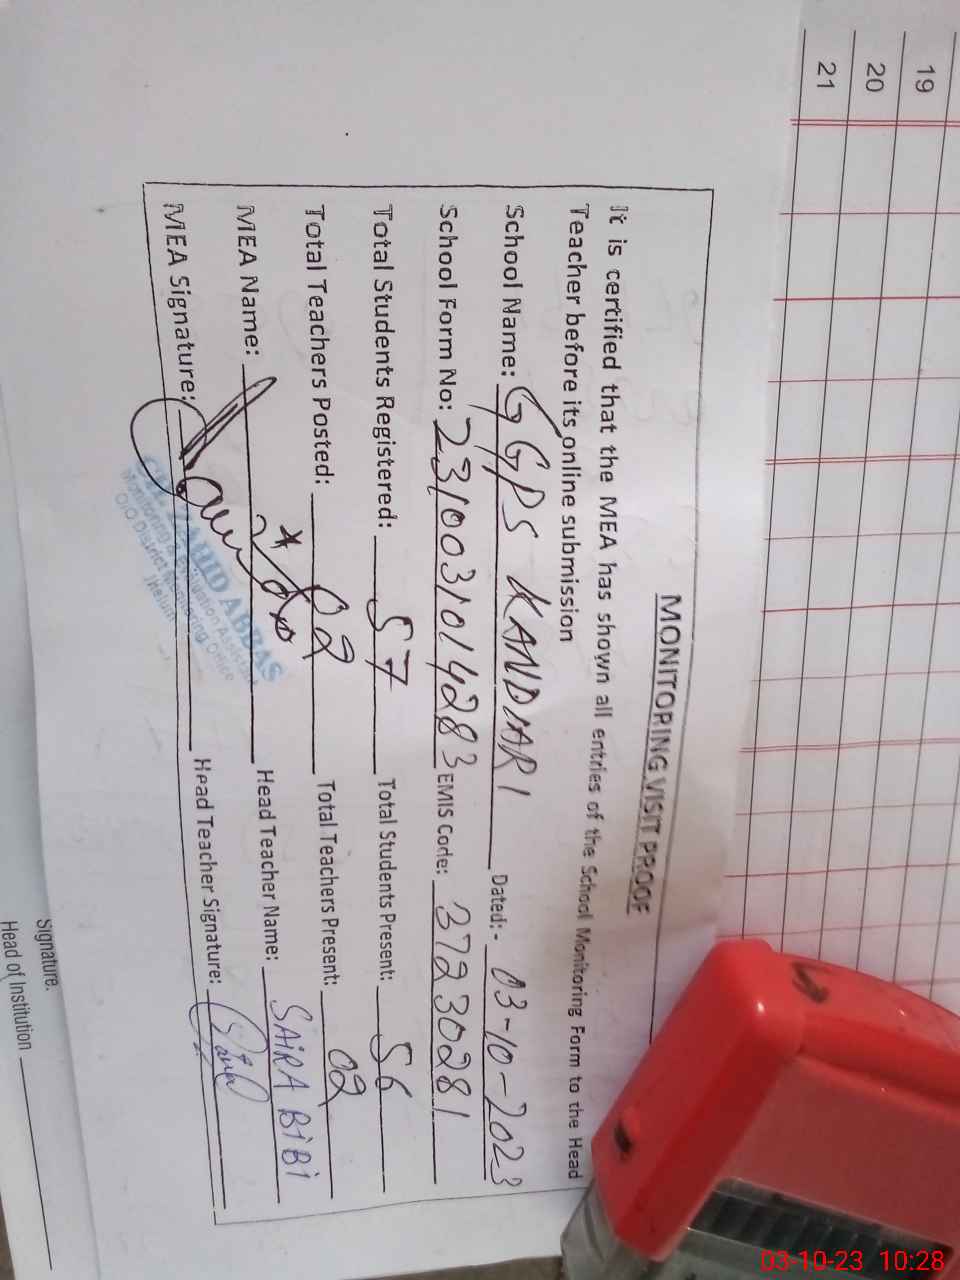 19
20
21
MONITORING VISIT PROOF
It is certified that the MEA has shown all entries of the School Monitoring Form to the Head
Teacher before its online submission
School Name: GGPS KANDIARI Dated:- 03-10-2023
School Form No: 2310031014283 EMIS Code: 37230281
Total Students Registered: 57 Total Students Present: 56
Total Teachers Posted: 02 Total Teachers Present: 02
MEA Name: Head Teacher Name: SAIRA BIBI
MEA Signature: Head Teacher Signature:
ABBAS
Monitoring & Evaluation Assistant
O/O District Monitoring Office
Jhelum
Signature.
Head of Institution
03-10-23 10:28